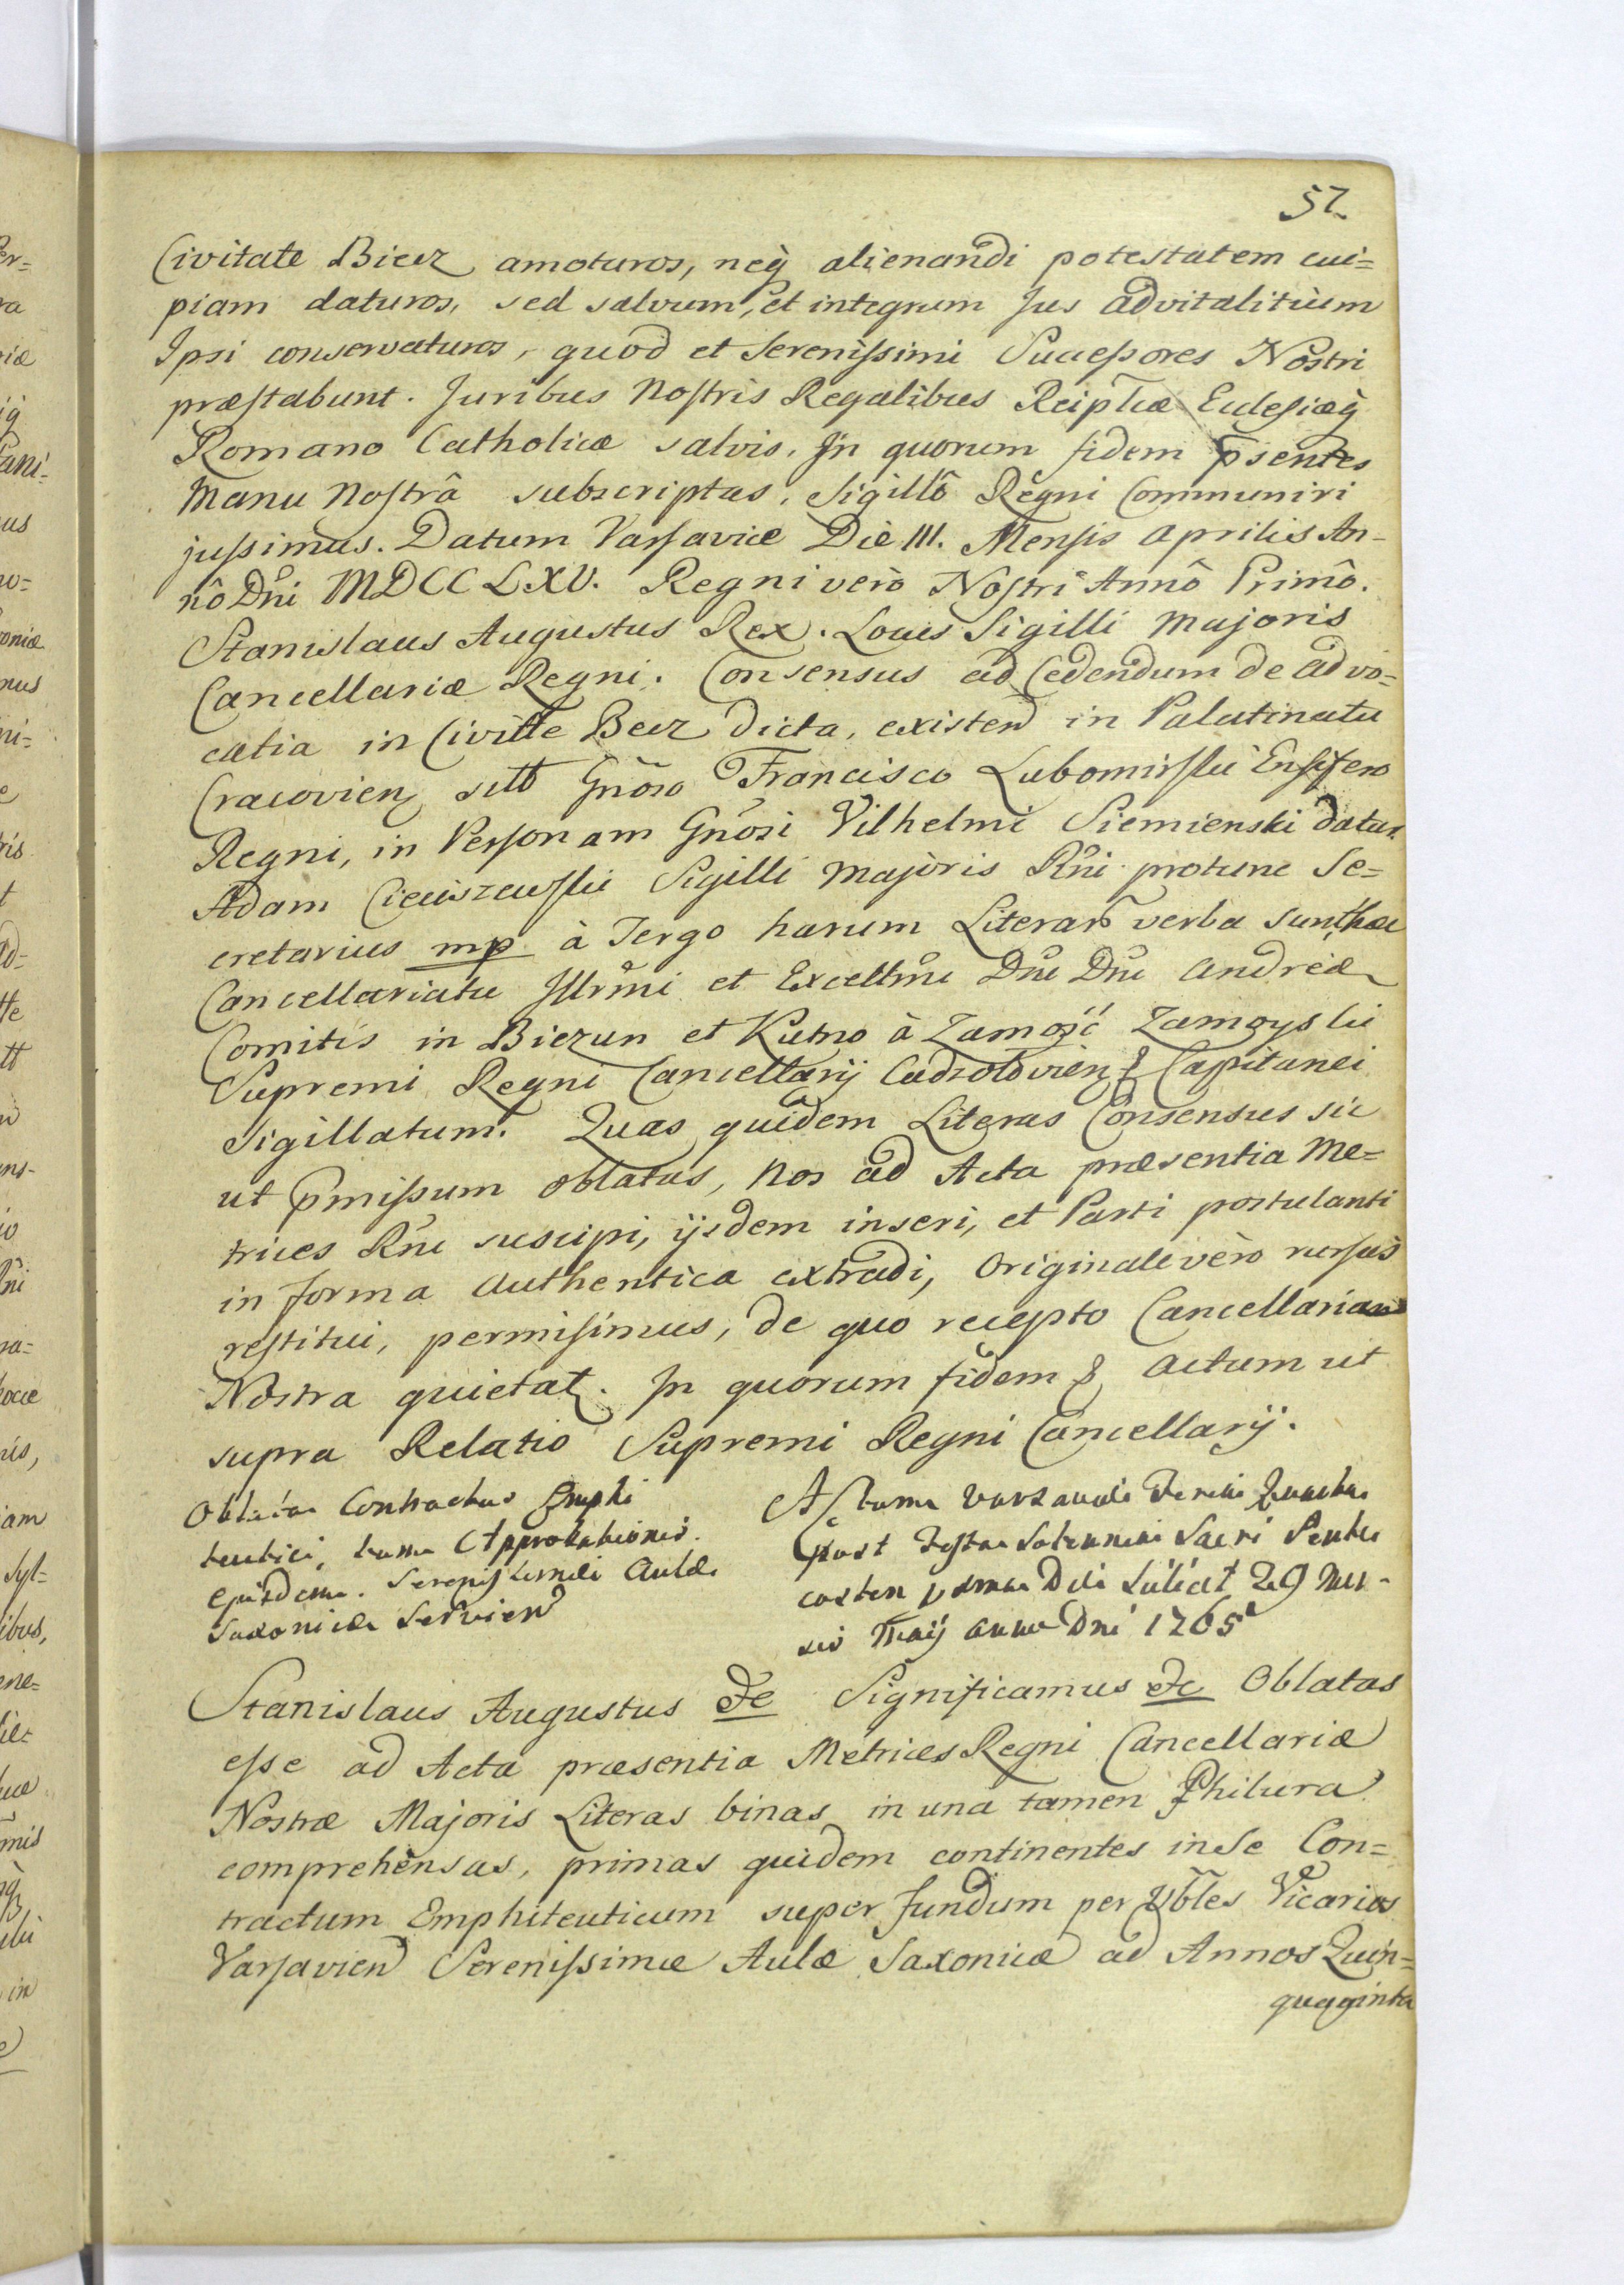 57
Civitate Biecz amoturos, neq̃ alienandi potestatem cui=
piam daturos, sed salvum, et integrum Jus advitalitium
Ipsi conservaturos, quod et Serenissimi Successores Nostri
præstabunt. Juribus Nostris Regalibus Reiplicæ Eclesiæq̃
Romano Catholicæ salvis. In quorum fidem p̃sentes
Manu Nostrâ subscriptas, Sigillô Regni Communiri
jussimus. Datum Varsaviæ Diè III. Mensis Aprilis An-
nô Dñi MDCCLXV. Regni verò Nostri Annô Primô.
Stanislaus Augustus Rex. Locus Sigilli Majoris
Cancellariæ Regni. Consensus ad Cedendum de advo=
catia in Civitte Becz dicta, existen in Palatinatu
Cracovien sitt Gñoso Francisco Lubomirski Ensifero
Regni, in Personam Gñosi Vilhelmi Siemienski datur.
Adam Cieciszewski Sigilli Majoris Rñi protunc Se=
cretarius mp à Tergo harum Literarũ verba sunt hæc
Cancellariatu Illrm̃i et Excellm̃i Dñi Dñi Andreæ
Comitis in Biezun et Kutno à Zamość Zamoyski
Supremi Regni Cancellarij &c Capitanei
Sigillatum. Quas quidem Literas Consensus sic
ut p̃missum oblatas, Nos ad Acta præsentia Me=
trices Rñi suscipi, ijsdem inseri, et Parti postulanti
in forma Authentica extradi, Originale verò rursus
restitui, permisimus, de quo recepto Cancellariam
Nostra quietat. In quorum fidem &c Actum ut
supra Relatio Supremi Regni Cancellarij.
Oblata Contractus Emphi
teutici, tum Approbationis
ejusdem. Serenissimæ Aulæ
Saxonicæ Servien
Actum Varsaviæ Feria Quarta
post Festa Solennia Sacri Pente
costen proxima Die scilicet 29 Men-
sis Maij anno Dni 1765
Stanislaus Augustus &c Significamus &c Oblatas
esse ad Acta præsentia Metrices Regni Cancellariæ
Nostræ Majoris Literas binas in una tamen Philura
comprehensas, primas quidem continentes in Se Con=
tractum Emphiteuticum super fundum per Vbles Vicarios
Varsavien Serenissimæ Aulæ Saxonicæ ad Annos Quin=
quaginta